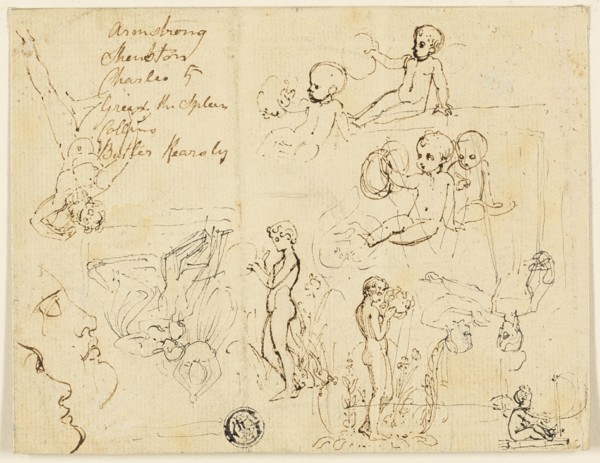 Armstrong
Shenston
Charles 5
Green, the Spleen
Collins
Butler Kearsly